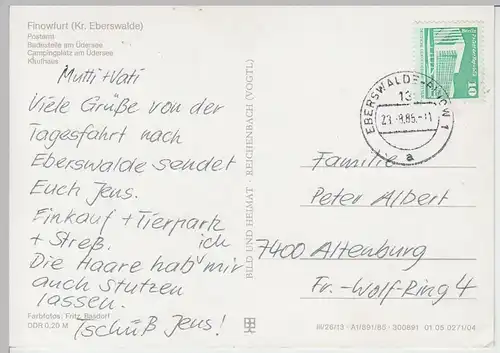 Finowfurt (Kr. Eberswalde)
Postamt
Badestelle am Üdersee
Campingplatz am Üdersee
Kaufhaus
Mutti + Vati
Viele Grüße von der
Tagesfahrt nach
Eberswalde sendet
Euch Jens.
Einkauf + Tierpark
+ Streß.
Die Haare hab ich mir
auch stutzen
lassen.
Tschüß Jens!
Farbfotos: Fritz, Basdorf
DDR 0,20 M
BILD UND HEIMAT · REICHENBACH (VOGTL)
10
EBERSWALDE-FINOW 1
13
-8.85-11
a
Familie
Peter Albert
7400 Altenburg
Fr.-Wolf-Ring 4
III/26/13 · A1/891/85 · 300891 01 05 027U/04